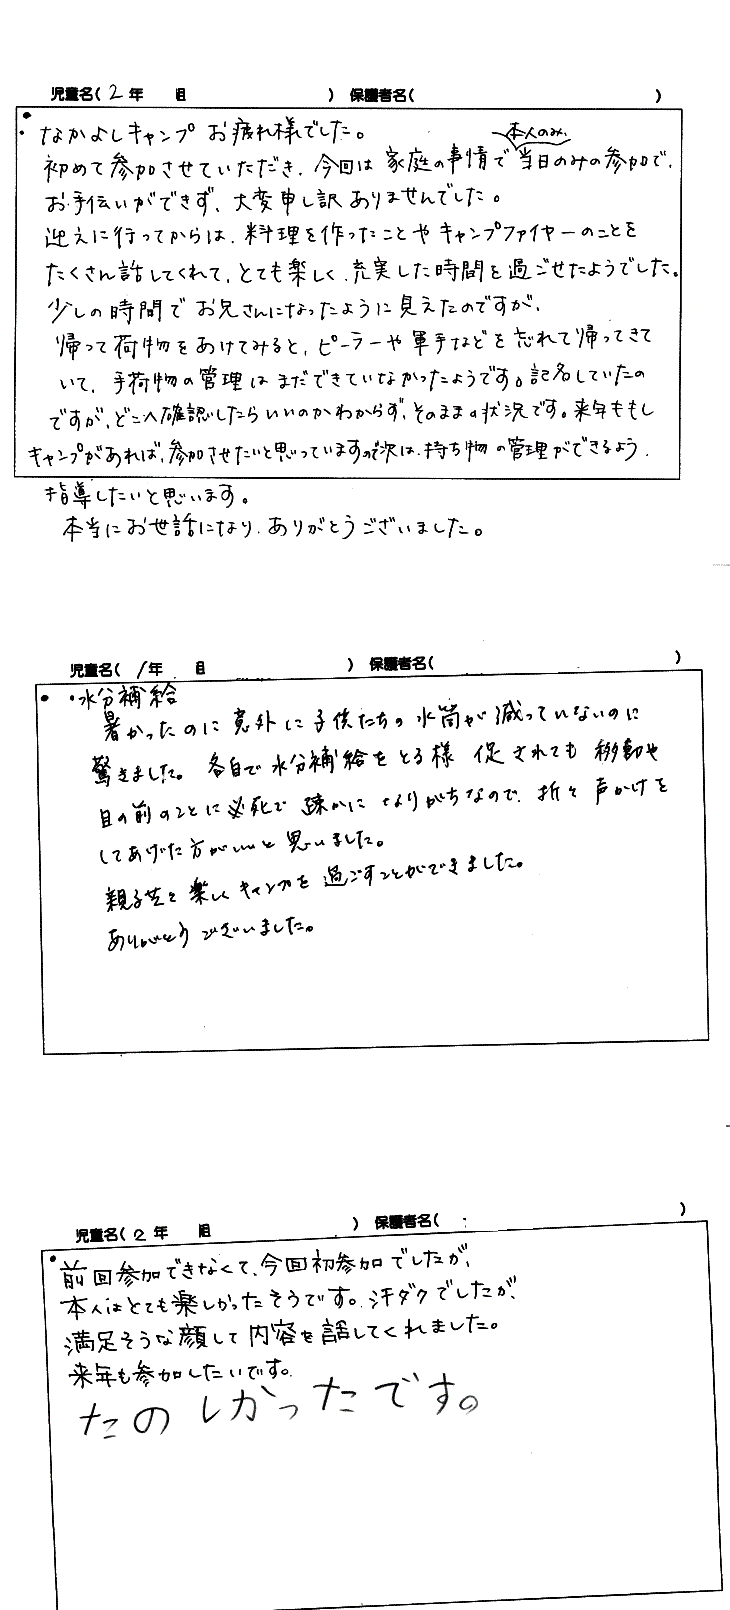 児童名( 2 年 組 ) 保護者名( )
・なかよしキャンプ お疲れ様でした。
本人のみ、
初めて参加させていただき、今回は家庭の事情で当日のみの参加で、
お手伝いができず、大変申し訳ありませんでした。
迎えに行ってからは、料理を作ったことやキャンプファイヤーのことを
たくさん話してくれて、とても楽しく、充実した時間を過ごせたようでした。
少しの時間でお兄さんになったように見えたのですが、
帰って荷物をあけてみると、ピーラーや軍手などを忘れて帰ってきて
いて、手荷物の管理はまだできていなかったようです。記名していたの
ですが、どこへ確認したらいいのかわからず、そのままの状況です。来年ももし
キャンプがあれば、参加させたいと思っていますので次は、持ち物の管理ができるよう、
指導したいと思います。
本当にお世話になり、ありがとうございました。
児童名( 1年 組 ) 保護者名( )
・水分補給
暑かったのに意外に子供たちの水筒が減っていないのに
驚きました。各自で水分補給をとる様 促されても 移動や
目の前のことに必死で 疎かに なりがちなので、折々 声かけを
してあげた方がいいと思いました。
親子共々楽しくキャンプを過ごすことができました。
ありがとうございました。
児童名( 2 年 組 ) 保護者名( )
前回参加できなくて、今回初参加でしたが、
本人はとても楽しかったそうです。汗ダクでしたが、
満足そうな顔して内容を話してくれました。
来年も参加したいです。
たのしかったです。